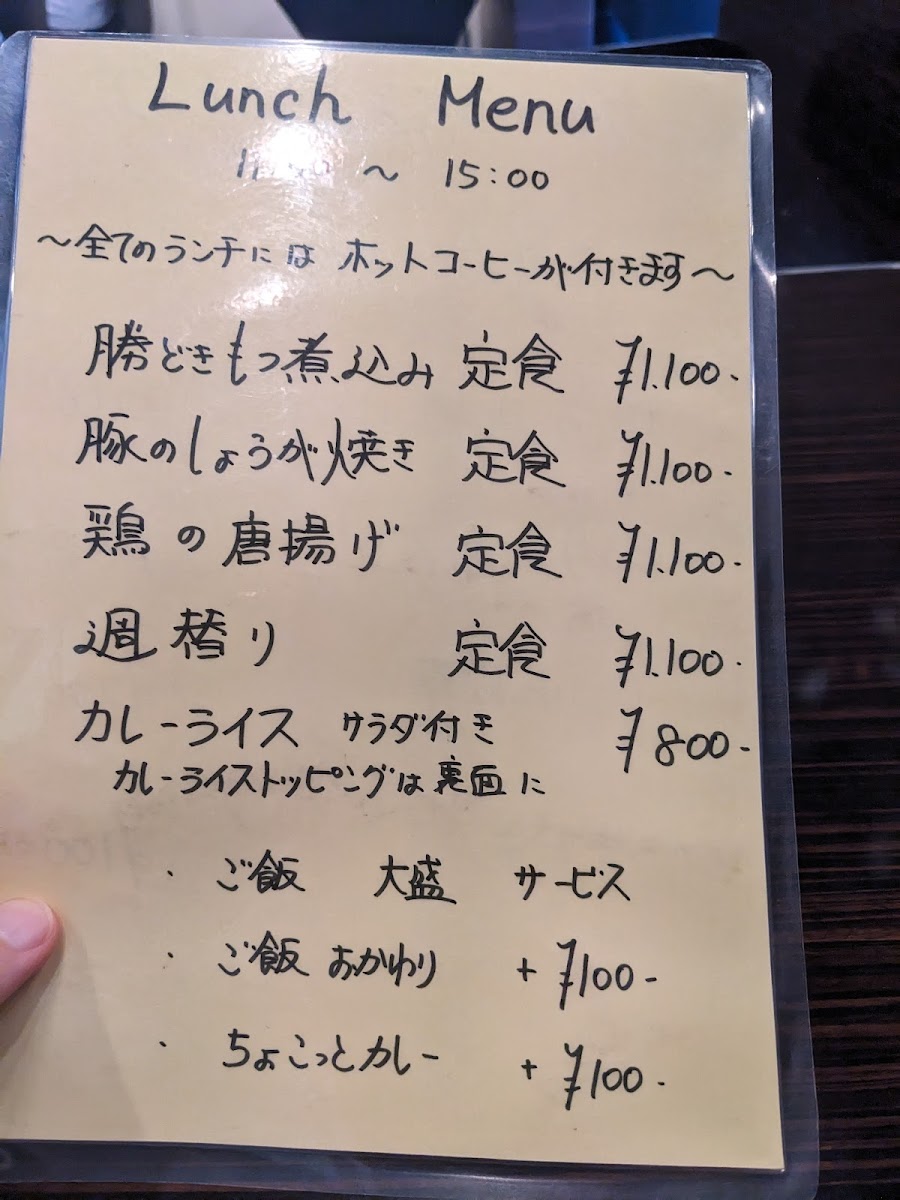 Lunch Menu
～ 15:00
～全てのランチには ホットコーヒーが付きます～
勝どきもつ煮込み 定食 ¥1.100-
豚のしょうが焼き 定食 ¥1.100-
鶏の唐揚げ 定食 ¥1.100-
週替り 定食 ¥1.100-
カレーライス サラダ付き ¥800-
カレーライストッピングは裏面に
・ ご飯 大盛 サービス
・ ご飯 おかわり + ¥100-
・ ちょこっとカレー + ¥100-